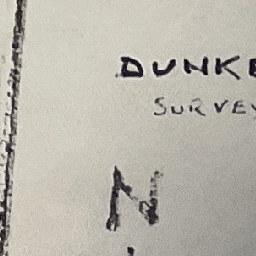 DUNKE
SURVEY
N